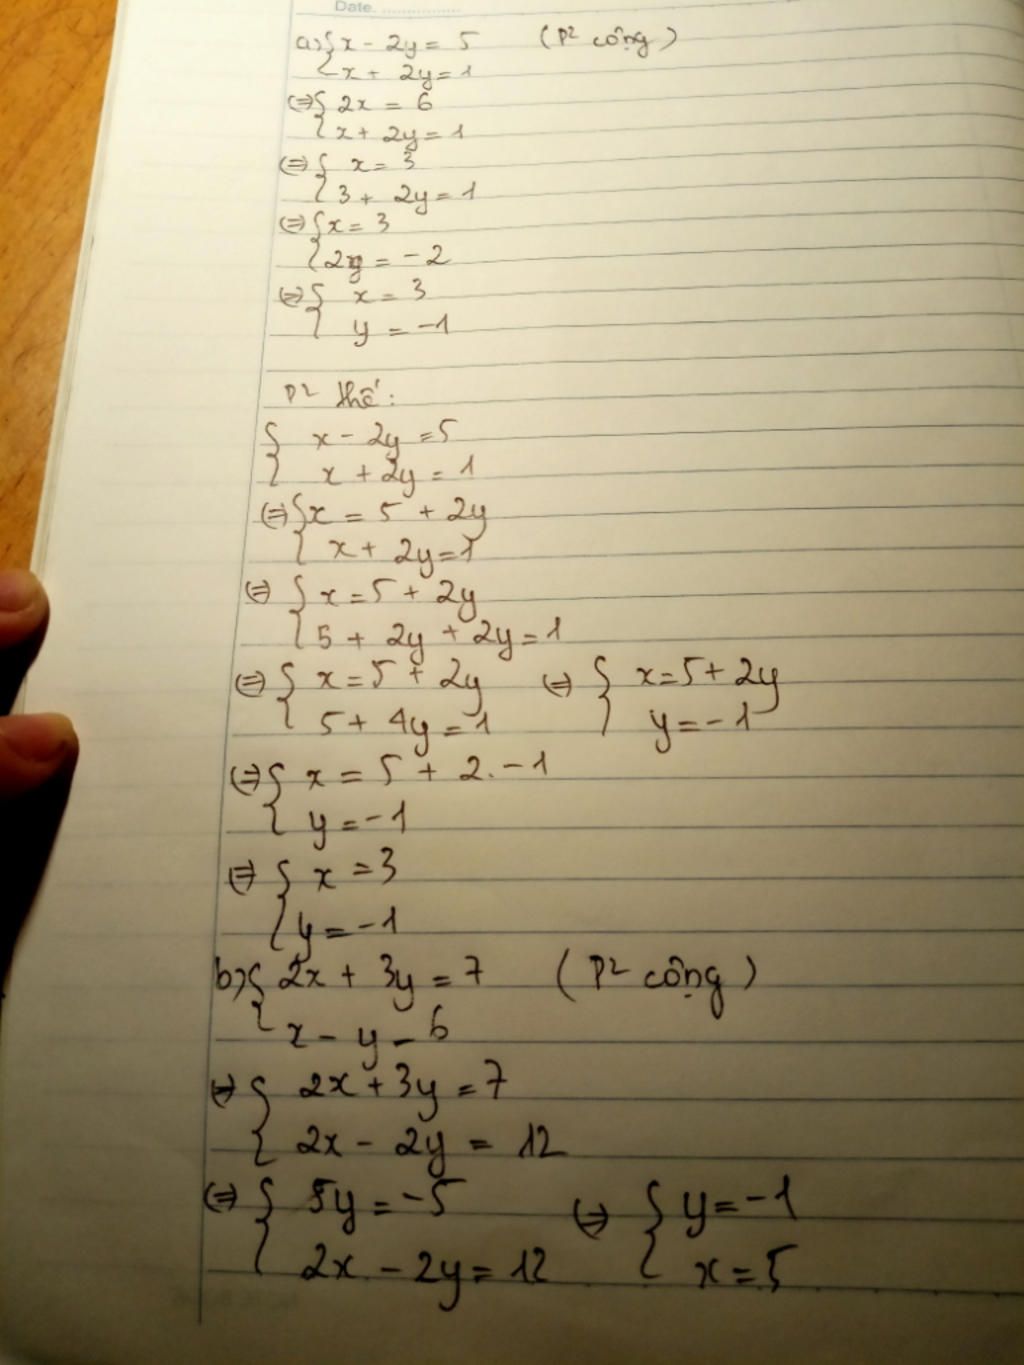 Date. ...............
a) { x - 2y = 5 (P² cộng)
{ x + 2y = 1
(=) { 2x = 6
{ x + 2y = 1
(=) { x = 3
{ 3 + 2y = 1
(=) { x = 3
{ 2y = -2
(=) { x = 3
{ y = -1
P² thế:
{ x - 2y = 5
{ x + 2y = 1
(=) { x = 5 + 2y
{ x + 2y = 1
(=) { x = 5 + 2y
{ 5 + 2y + 2y = 1
(=) { x = 5 + 2y (=) { x = 5 + 2y
{ 5 + 4y = 1 { y = -1
(=) { x = 5 + 2. -1
{ y = -1
(=) { x = 3
{ y = -1
b) { 2x + 3y = 7 (P² cộng)
{ x - y - 6
(=) { 2x + 3y = 7
{ 2x - 2y = 12
(=) { 5y = -5 (=) { y = -1
{ 2x - 2y = 12 { x = 5